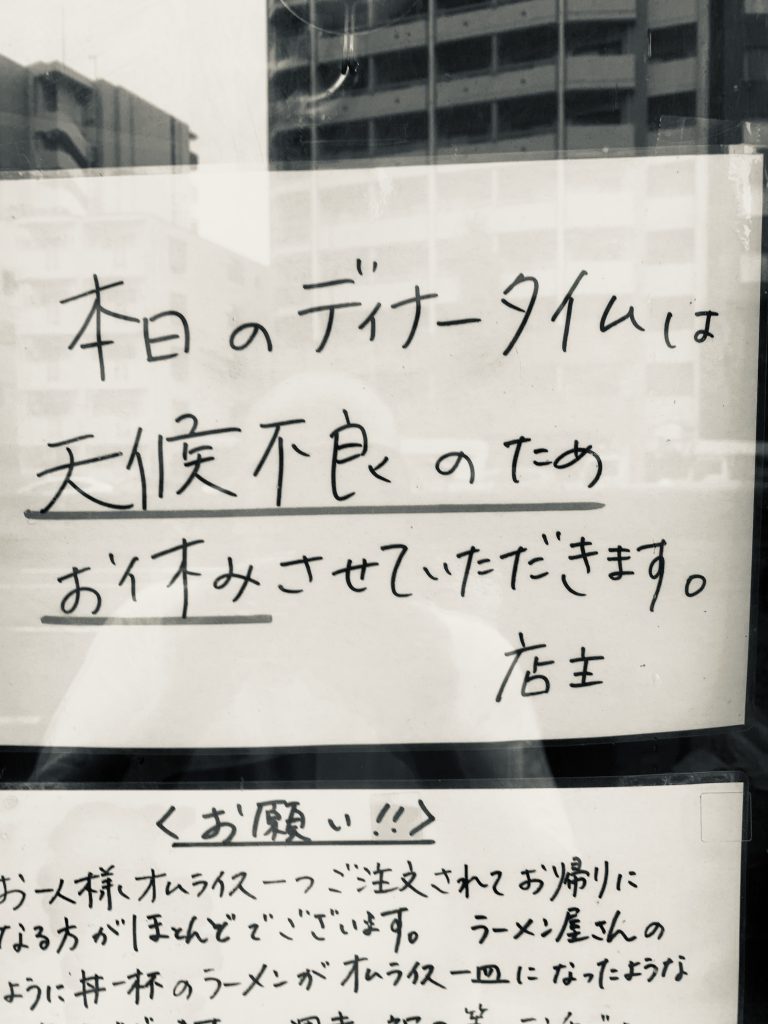 本日のディナータイムは
天候不良のため
お休みさせていただきます。
店主
＜お願い!!＞
お一人様、オムライス一つご注文されてお帰りに
なる方がほとんどでございます。 ラーメン屋さんの
ように丼一杯のラーメンがオムライス一皿になったような